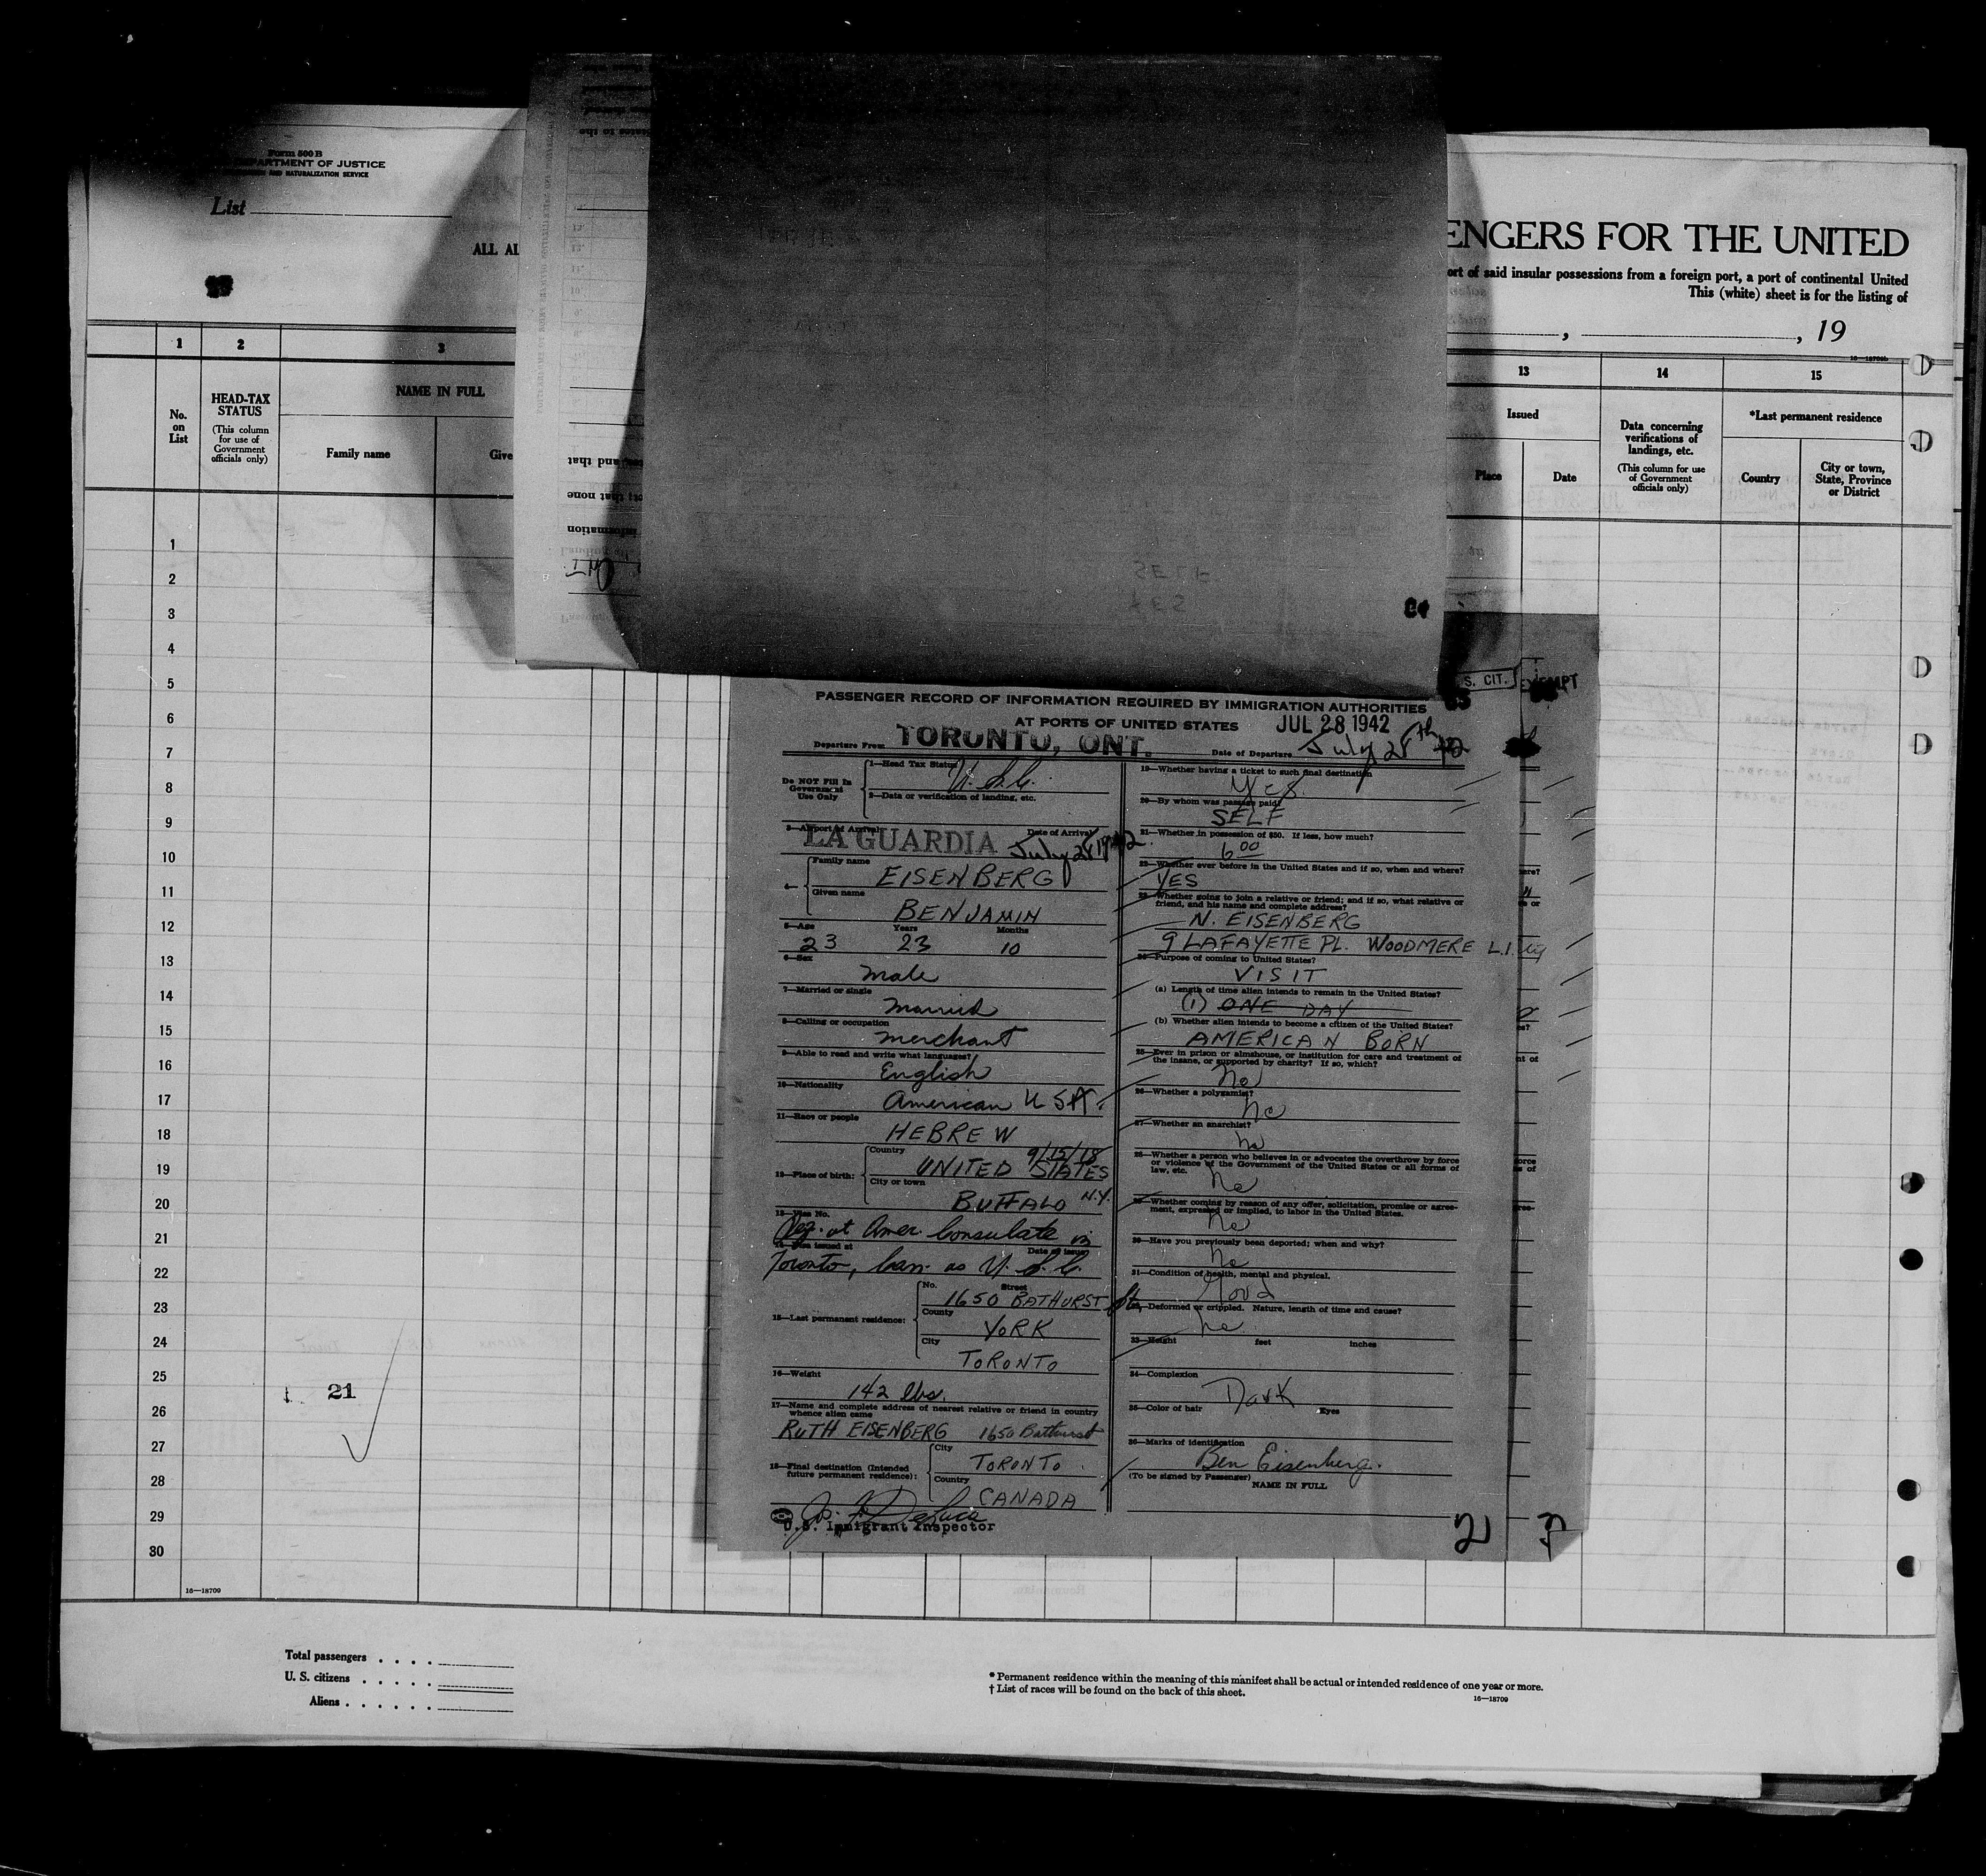 Form 500 B
DEPARTMENT OF JUSTICE
AND NATURALIZATION SERVICE
List
ALL AL
ENGERS FOR THE UNITED
port of said insular possessions from a foreign port, a port of continental United
This (white) sheet is for the listing of
, , 19
1 2 3 13 14 15
No. on List
HEAD-TAX STATUS
(This column for use of Government officials only)
NAME IN FULL
Family name
Give
Issued
Place
Date
Data concerning verifications of landings, etc.
(This column for use of Government officials only)
*Last permanent residence
Country
City or town, State, Province or District
1
2
3
4
5
6
7
8
9
10
11
12
13
14
15
16
17
18
19
20
21
22
23
24
25
26
27
28
29
30
21
16—18709
S. CIT.
EXEMPT
PASSENGER RECORD OF INFORMATION REQUIRED BY IMMIGRATION AUTHORITIES
AT PORTS OF UNITED STATES JUL 28 1942
Departure From TORONTO, ONT. Date of Departure July 28th 42
Do NOT Fill In Government Use Only
1—Head Tax Status U.S.C.
2—Data or verification of landing, etc.
3—Airport of Arrival LA GUARDIA Date of Arrival July 28
4— Family name EISENBERG
Given name BENJAMIN
5—Age 23 Years 23 Months 10
6—Sex Male
7—Married or single Married
8—Calling or occupation Merchant
9—Able to read and write what languages? English
10—Nationality American U S A.
11—Race or people HEBREW
12—Place of birth: Country UNITED STATES 9/15/18
City or town BUFFALO N.Y.
13—Visa No.
Reg. at Amer. Consulate in
14—Visa issued at Date of issue
Toronto, Can. as U.S.C.
15—Last permanent residence: No. Street 1650 BATHURST St.
County YORK
City TORONTO
16—Weight 142 lbs.
17—Name and complete address of nearest relative or friend in country whence alien came
RUTH EISENBERG 1650 Bathurst
18—Final destination (Intended future permanent residence): City TORONTO
Country CANADA
U.S. Immigrant Inspector
19—Whether having a ticket to such final destination
Yes.
20—By whom was passage paid?
SELF
21—Whether in possession of $50. If less, how much?
6 00
22—Whether ever before in the United States and if so, when and where?
YES
23—Whether going to join a relative or friend; and if so, what relative or friend, and his name and complete address?
N. EISENBERG
9 LAFAYETTE PL. WOODMERE L.I.
24—Purpose of coming to United States?
VISIT
(a) Length of time alien intends to remain in the United States?
(1) ONE DAY
(b) Whether alien intends to become a citizen of the United States?
AMERICAN BORN
25—Ever in prison or almshouse, or institution for care and treatment of the insane, or supported by charity? If so, which?
no
26—Whether a polygamist?
no
27—Whether an anarchist?
no
28—Whether a person who believes in or advocates the overthrow by force or violence of the Government of the United States or all forms of law, etc.
no
29—Whether coming by reason of any offer, solicitation, promise or agreement, expressed or implied, to labor in the United States.
no
30—Have you previously been deported; when and why?
no
31—Condition of health, mental and physical.
Good
32—Deformed or crippled. Nature, length of time and cause?
no
33—Height feet inches
34—Complexion
Dark
35—Color of hair Eyes
36—Marks of identification
Ben Eisenberg.
(To be signed by Passenger) NAME IN FULL
21
Total passengers . . . .
U. S. citizens . . . . .
Aliens . . . . . .
* Permanent residence within the meaning of this manifest shall be actual or intended residence of one year or more.
† List of races will be found on the back of this sheet.
16—18709